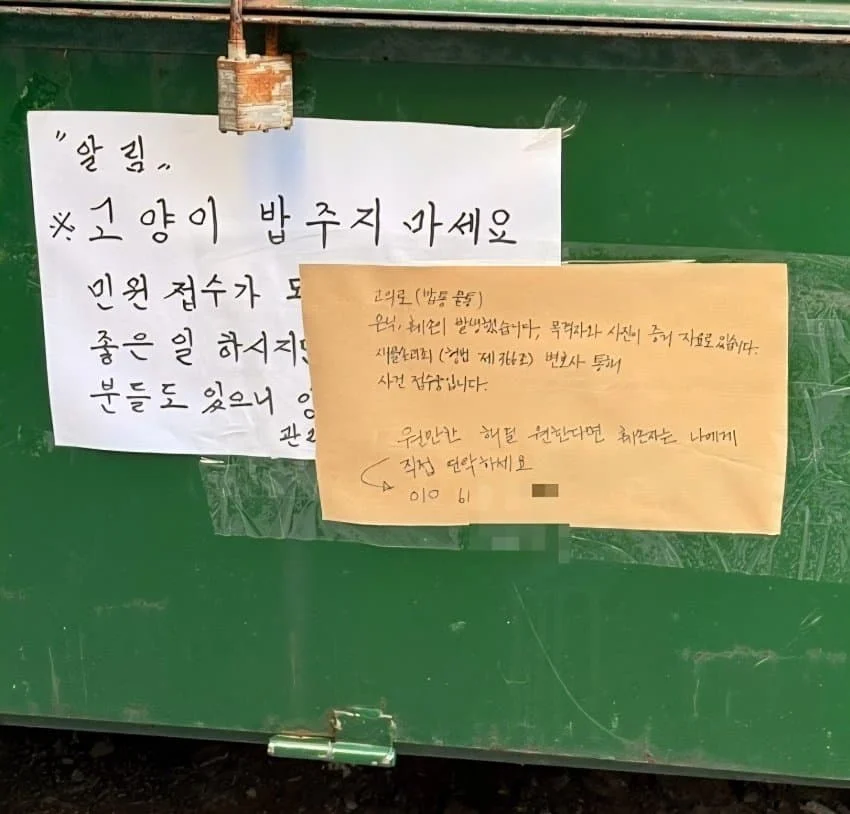 "알림"
※고양이 밥 주지 마세요
민원 접수가
좋은 일 하시지만
분들도 있으니
관리
고의로 (밥통 물통)
은닉, 훼손이 발생했습니다, 목격자와 사진이 증거 자료로 있습니다.
재물손괴죄 (형법 제366조) 변호사 통해
사건 접수중입니다.
원만한 해결 원한다면 훼손자는 나에게
직접 연락하세요
010 61